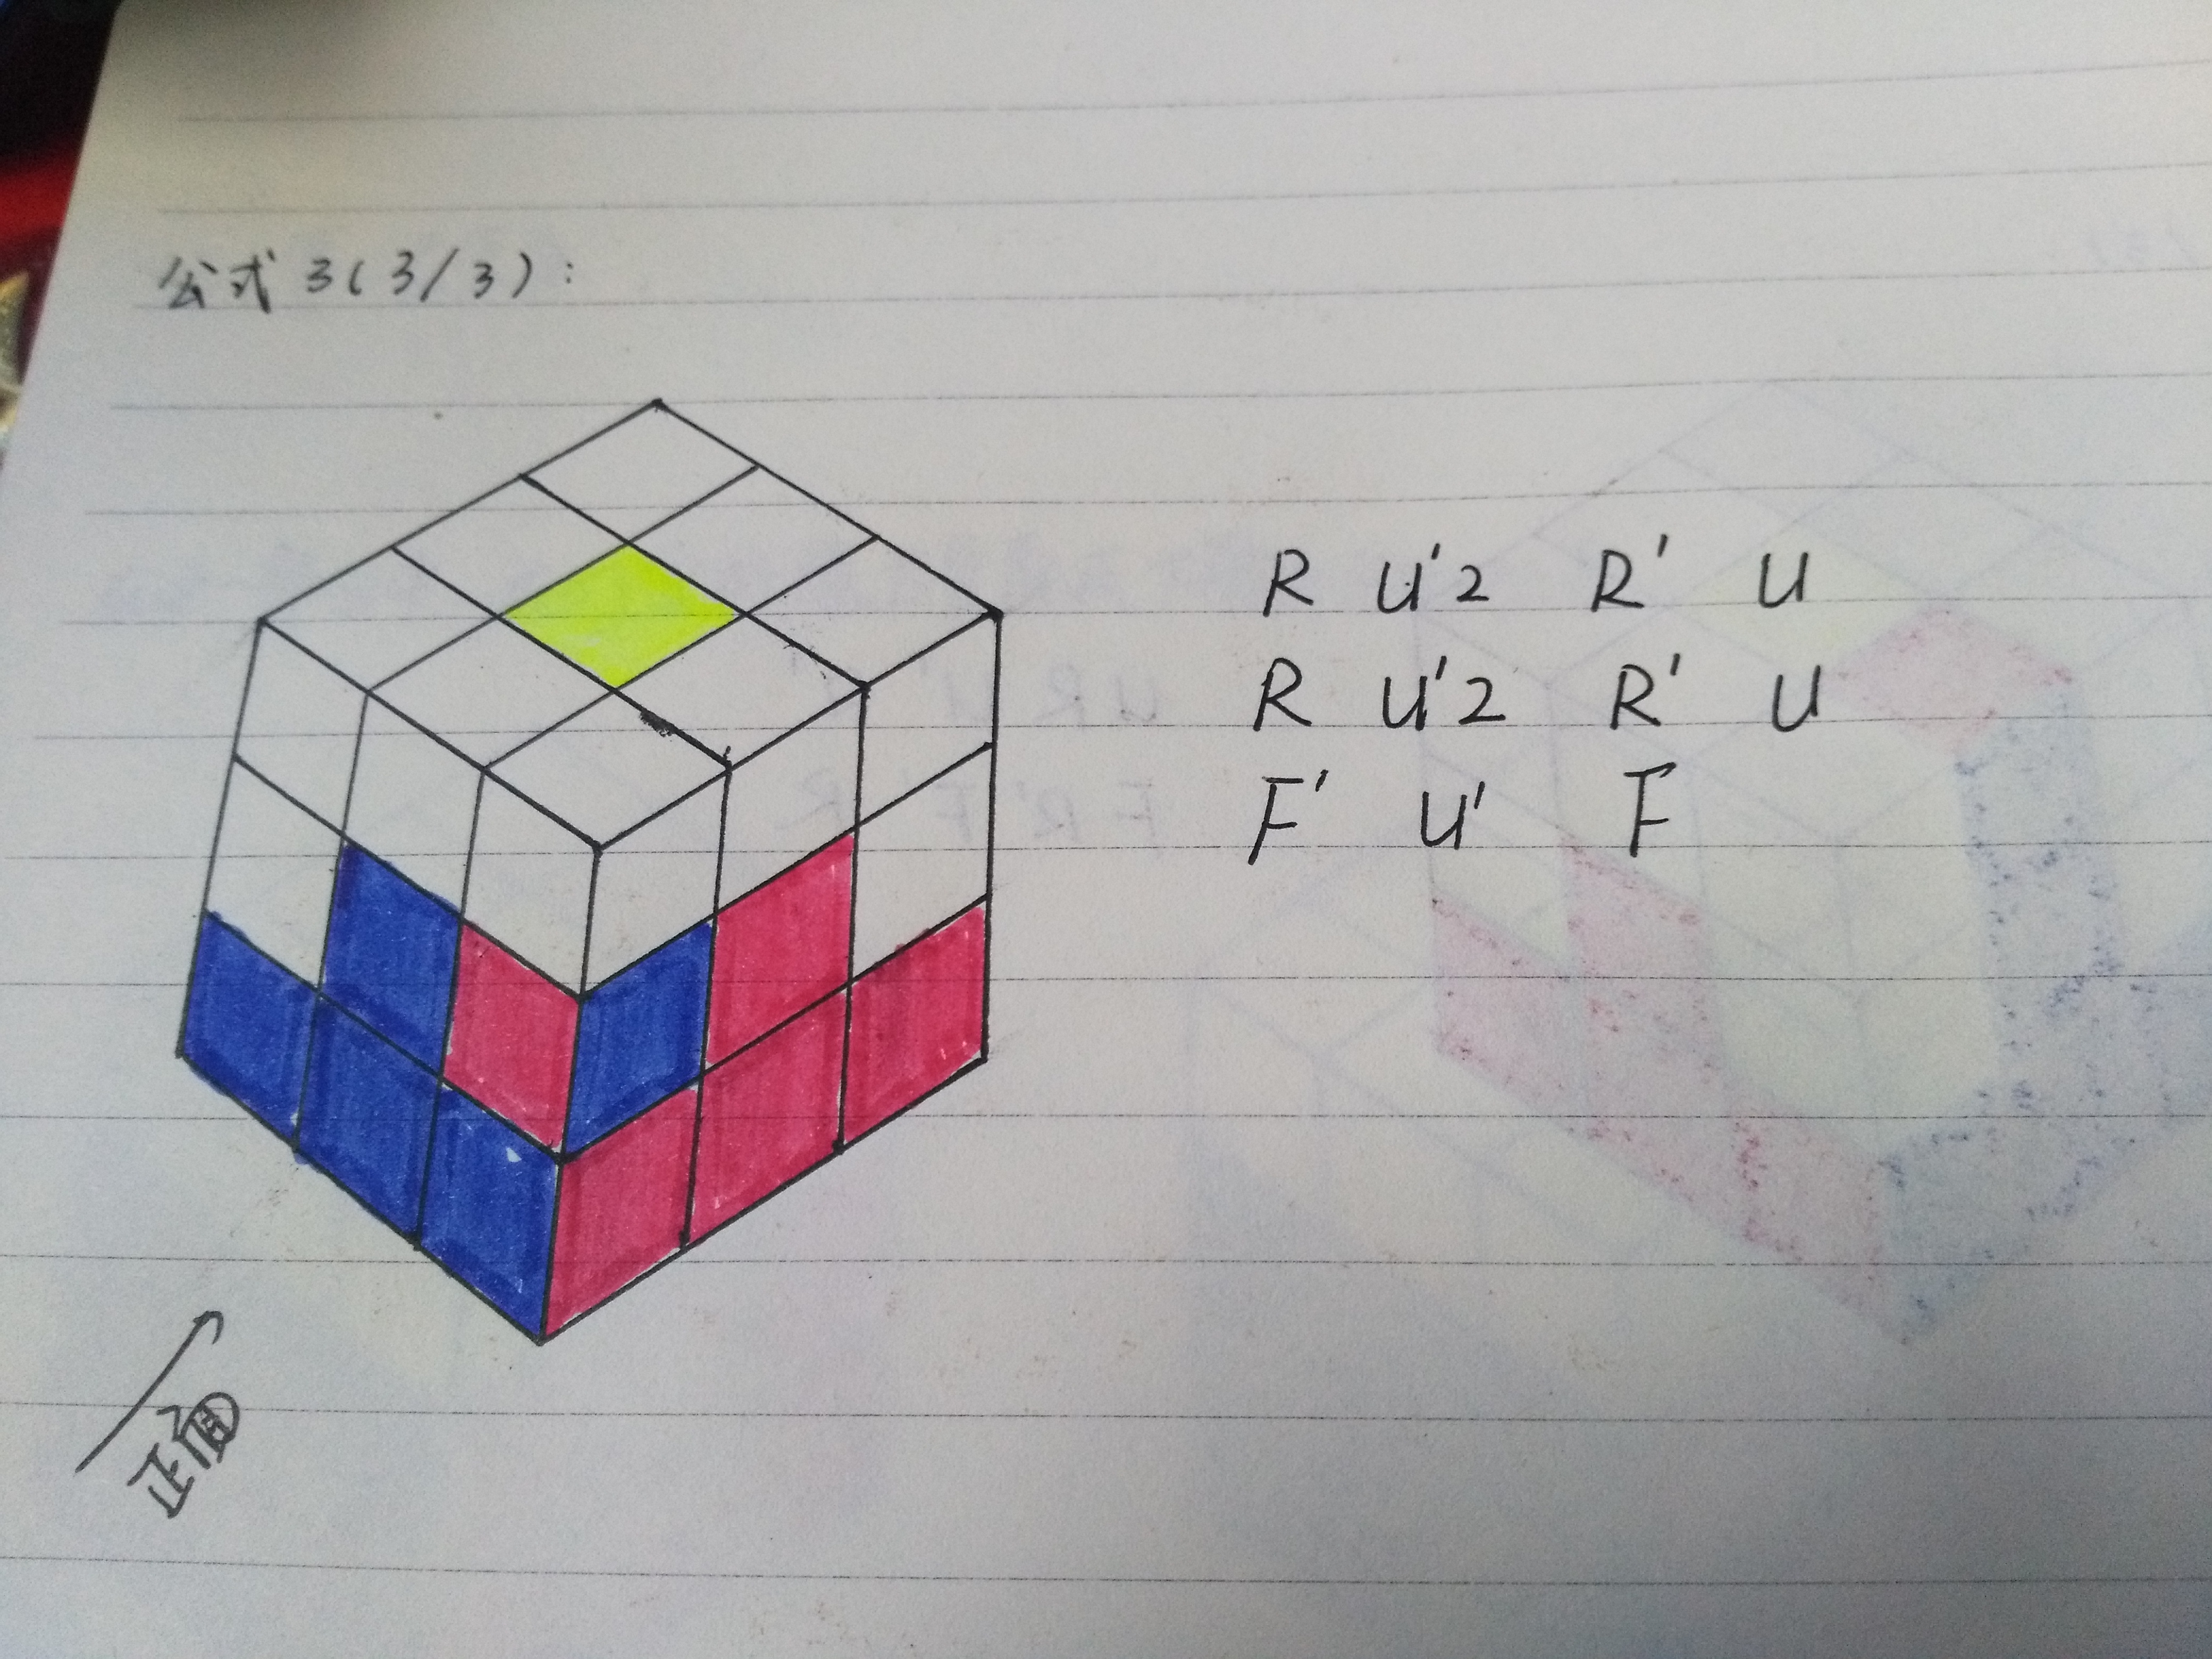 公式3(3/3):
R U'2 R' U
R U'2 R' U
F' U' F
正面